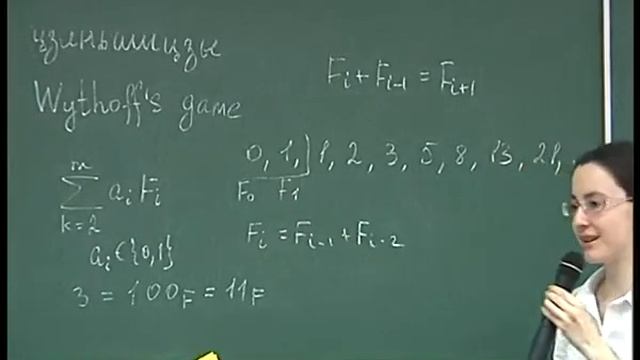 цзяньшицзы
Wythoff's game
F_i + F_{i-1} = F_{i+1}
0, 1, 1, 2, 3, 5, 8, 13, 21, .
F_0 F_1
m
∑ a_i F_i
k=2
a_i ∈ {0,1}
F_i = F_{i-1} + F_{i-2}
3 = 100_F = 11_F